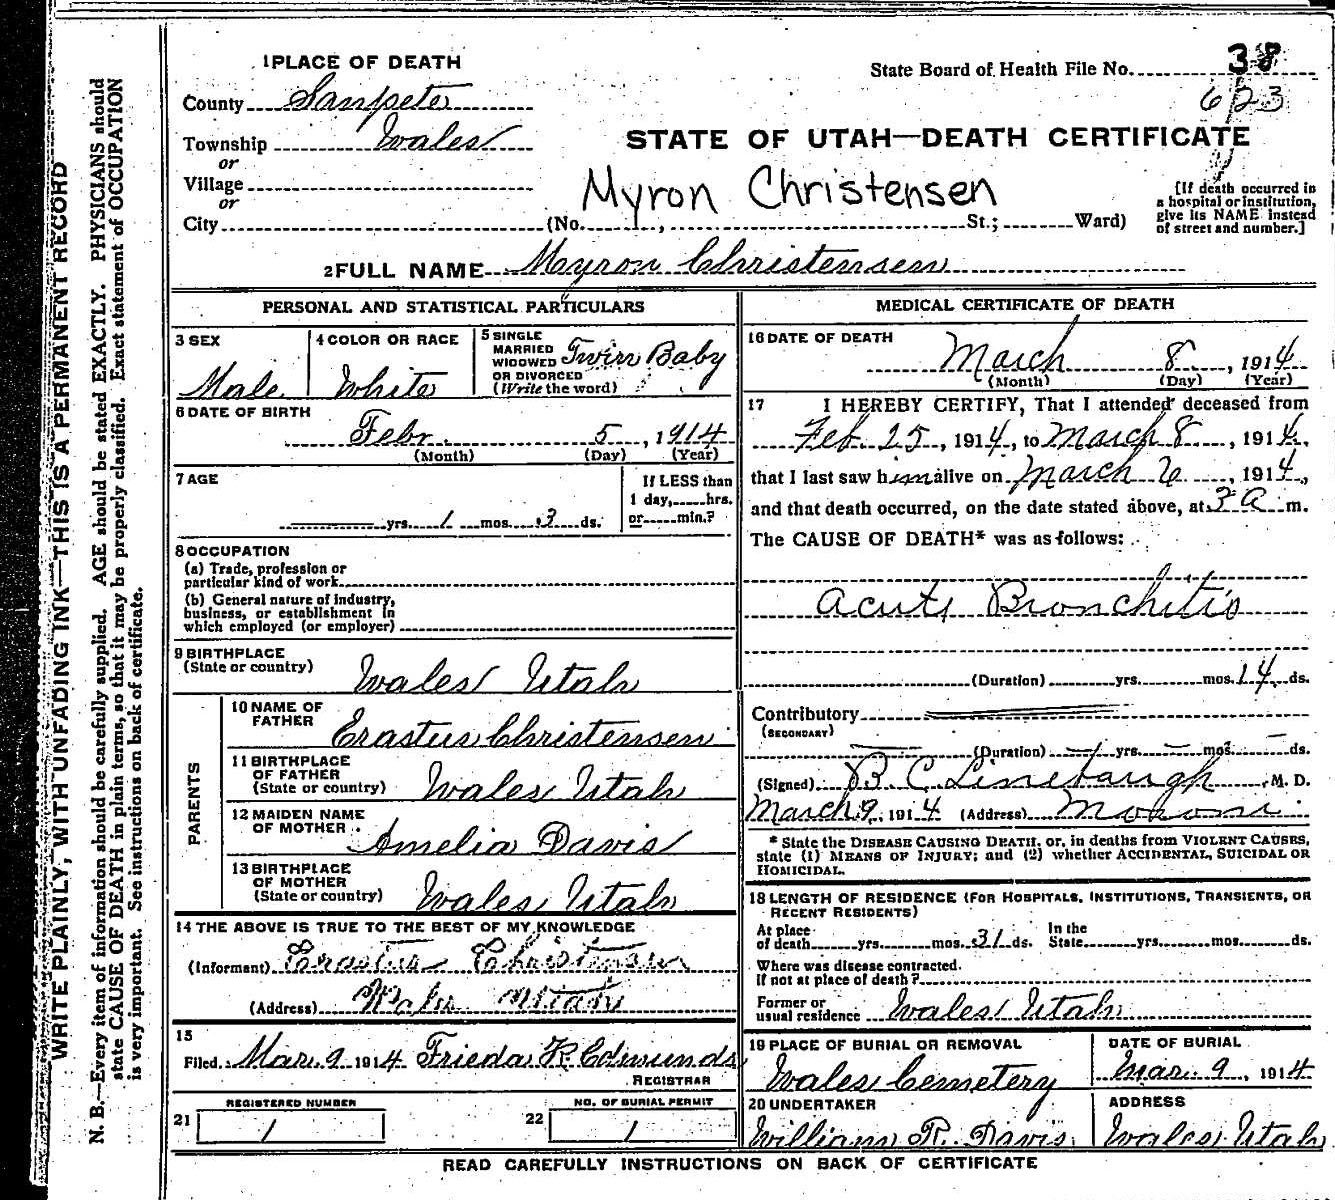 WRITE PLAINLY, WITH UNFADING INK—THIS IS A PERMANENT RECORD
N. B.—Every item of information should be carefully supplied. AGE should be stated EXACTLY. PHYSICIANS should
state CAUSE OF DEATH in plain terms, so that it may be properly classified. Exact statement of OCCUPATION
is very important. See instructions on back of certificate.
1 PLACE OF DEATH
State Board of Health File No. 38
623
County Sanpete
Township Wales
or
Village
or
City (No. , St.; Ward)
STATE OF UTAH—DEATH CERTIFICATE
Myron Christensen
[If death occurred in
a hospital or institution,
give its NAME instead
of street and number.]
2 FULL NAME Myron Christensen
PERSONAL AND STATISTICAL PARTICULARS
3 SEX
Male
4 COLOR OR RACE
White
5 SINGLE
MARRIED
WIDOWED
OR DIVORCED
(Write the word)
Twin Baby
6 DATE OF BIRTH
Febr. 5, 1914
(Month) (Day) (Year)
7 AGE
yrs. 1 mos. 3 ds.
If LESS than
1 day, hrs.
or min.?
8 OCCUPATION
(a) Trade, profession or
particular kind of work
(b) General nature of industry,
business, or establishment in
which employed (or employer)
9 BIRTHPLACE
(State or country) Wales Utah
PARENTS
10 NAME OF
FATHER Erastus Christensen
11 BIRTHPLACE
OF FATHER
(State or country) Wales Utah
12 MAIDEN NAME
OF MOTHER Amelia Davis
13 BIRTHPLACE
OF MOTHER
(State or country) Wales Utah
14 THE ABOVE IS TRUE TO THE BEST OF MY KNOWLEDGE
(Informant) Erastus Christensen
(Address) Wales Utah
15
Filed Mar. 9 1914 Frieda R. Edmunds
REGISTRAR
21 REGISTERED NUMBER
1
22 NO. OF BURIAL PERMIT
1
MEDICAL CERTIFICATE OF DEATH
16 DATE OF DEATH
March 8, 1914
(Month) (Day) (Year)
17 I HEREBY CERTIFY, That I attended deceased from
Feb 25, 1914, to March 8, 1914,
that I last saw him alive on March 6, 1914,
and that death occurred, on the date stated above, at 3 A m.
The CAUSE OF DEATH* was as follows:
Acute Bronchitis
(Duration) yrs. mos. 14 ds.
Contributory
(SECONDARY)
(Duration) yrs. mos. ds.
(Signed) B. C. Linebaugh, M. D.
March 9, 1914 (Address) Moroni
* State the DISEASE CAUSING DEATH, or, in deaths from VIOLENT CAUSES,
state (1) MEANS OF INJURY; and (2) whether ACCIDENTAL, SUICIDAL OR
HOMICIDAL.
18 LENGTH OF RESIDENCE (FOR HOSPITALS, INSTITUTIONS, TRANSIENTS, OR
RECENT RESIDENTS)
At place
of death yrs. mos. 31 ds.
In the
State yrs. mos. ds.
Where was disease contracted.
If not at place of death?
Former or
usual residence Wales Utah
19 PLACE OF BURIAL OR REMOVAL
Wales Cemetery
DATE OF BURIAL
Mar. 9, 1914
20 UNDERTAKER
William R. Davis
ADDRESS
Wales Utah
READ CAREFULLY INSTRUCTIONS ON BACK OF CERTIFICATE